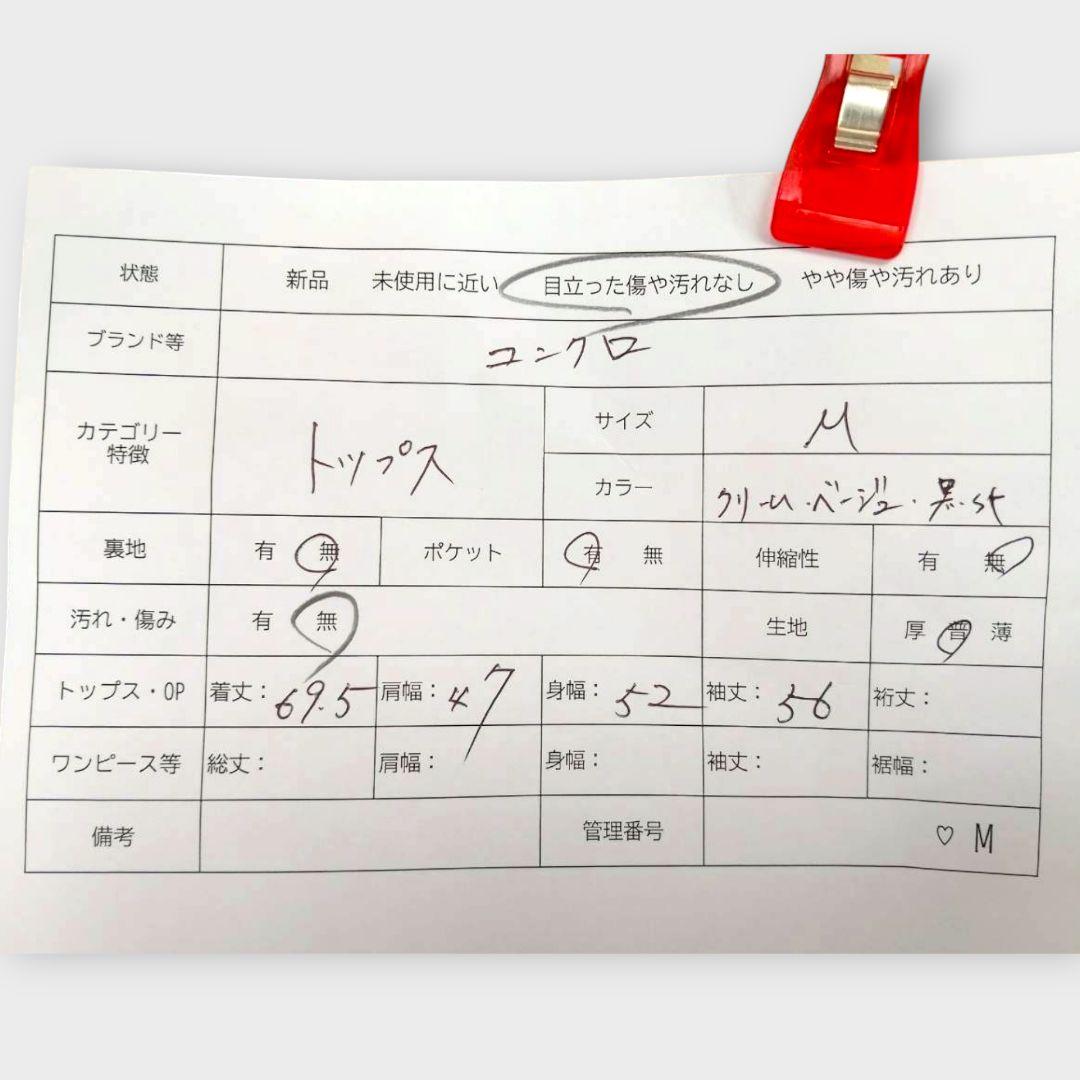 状態 新品 未使用に近い 目立った傷や汚れなし やや傷や汚れあり
ブランド等 コンクロ
カテゴリー
特徴
トップス
サイズ M
カラー クリーム・ベージュ・黒・st
裏地 有 無 ポケット 有 無 伸縮性 有 無
汚れ・傷み 有 無 生地 厚 普 薄
トップス・OP 着丈：69.5 肩幅：47 身幅：52 袖丈：56 裄丈：
ワンピース等 総丈： 肩幅： 身幅： 袖丈： 裾幅：
備考 管理番号 ♡ M